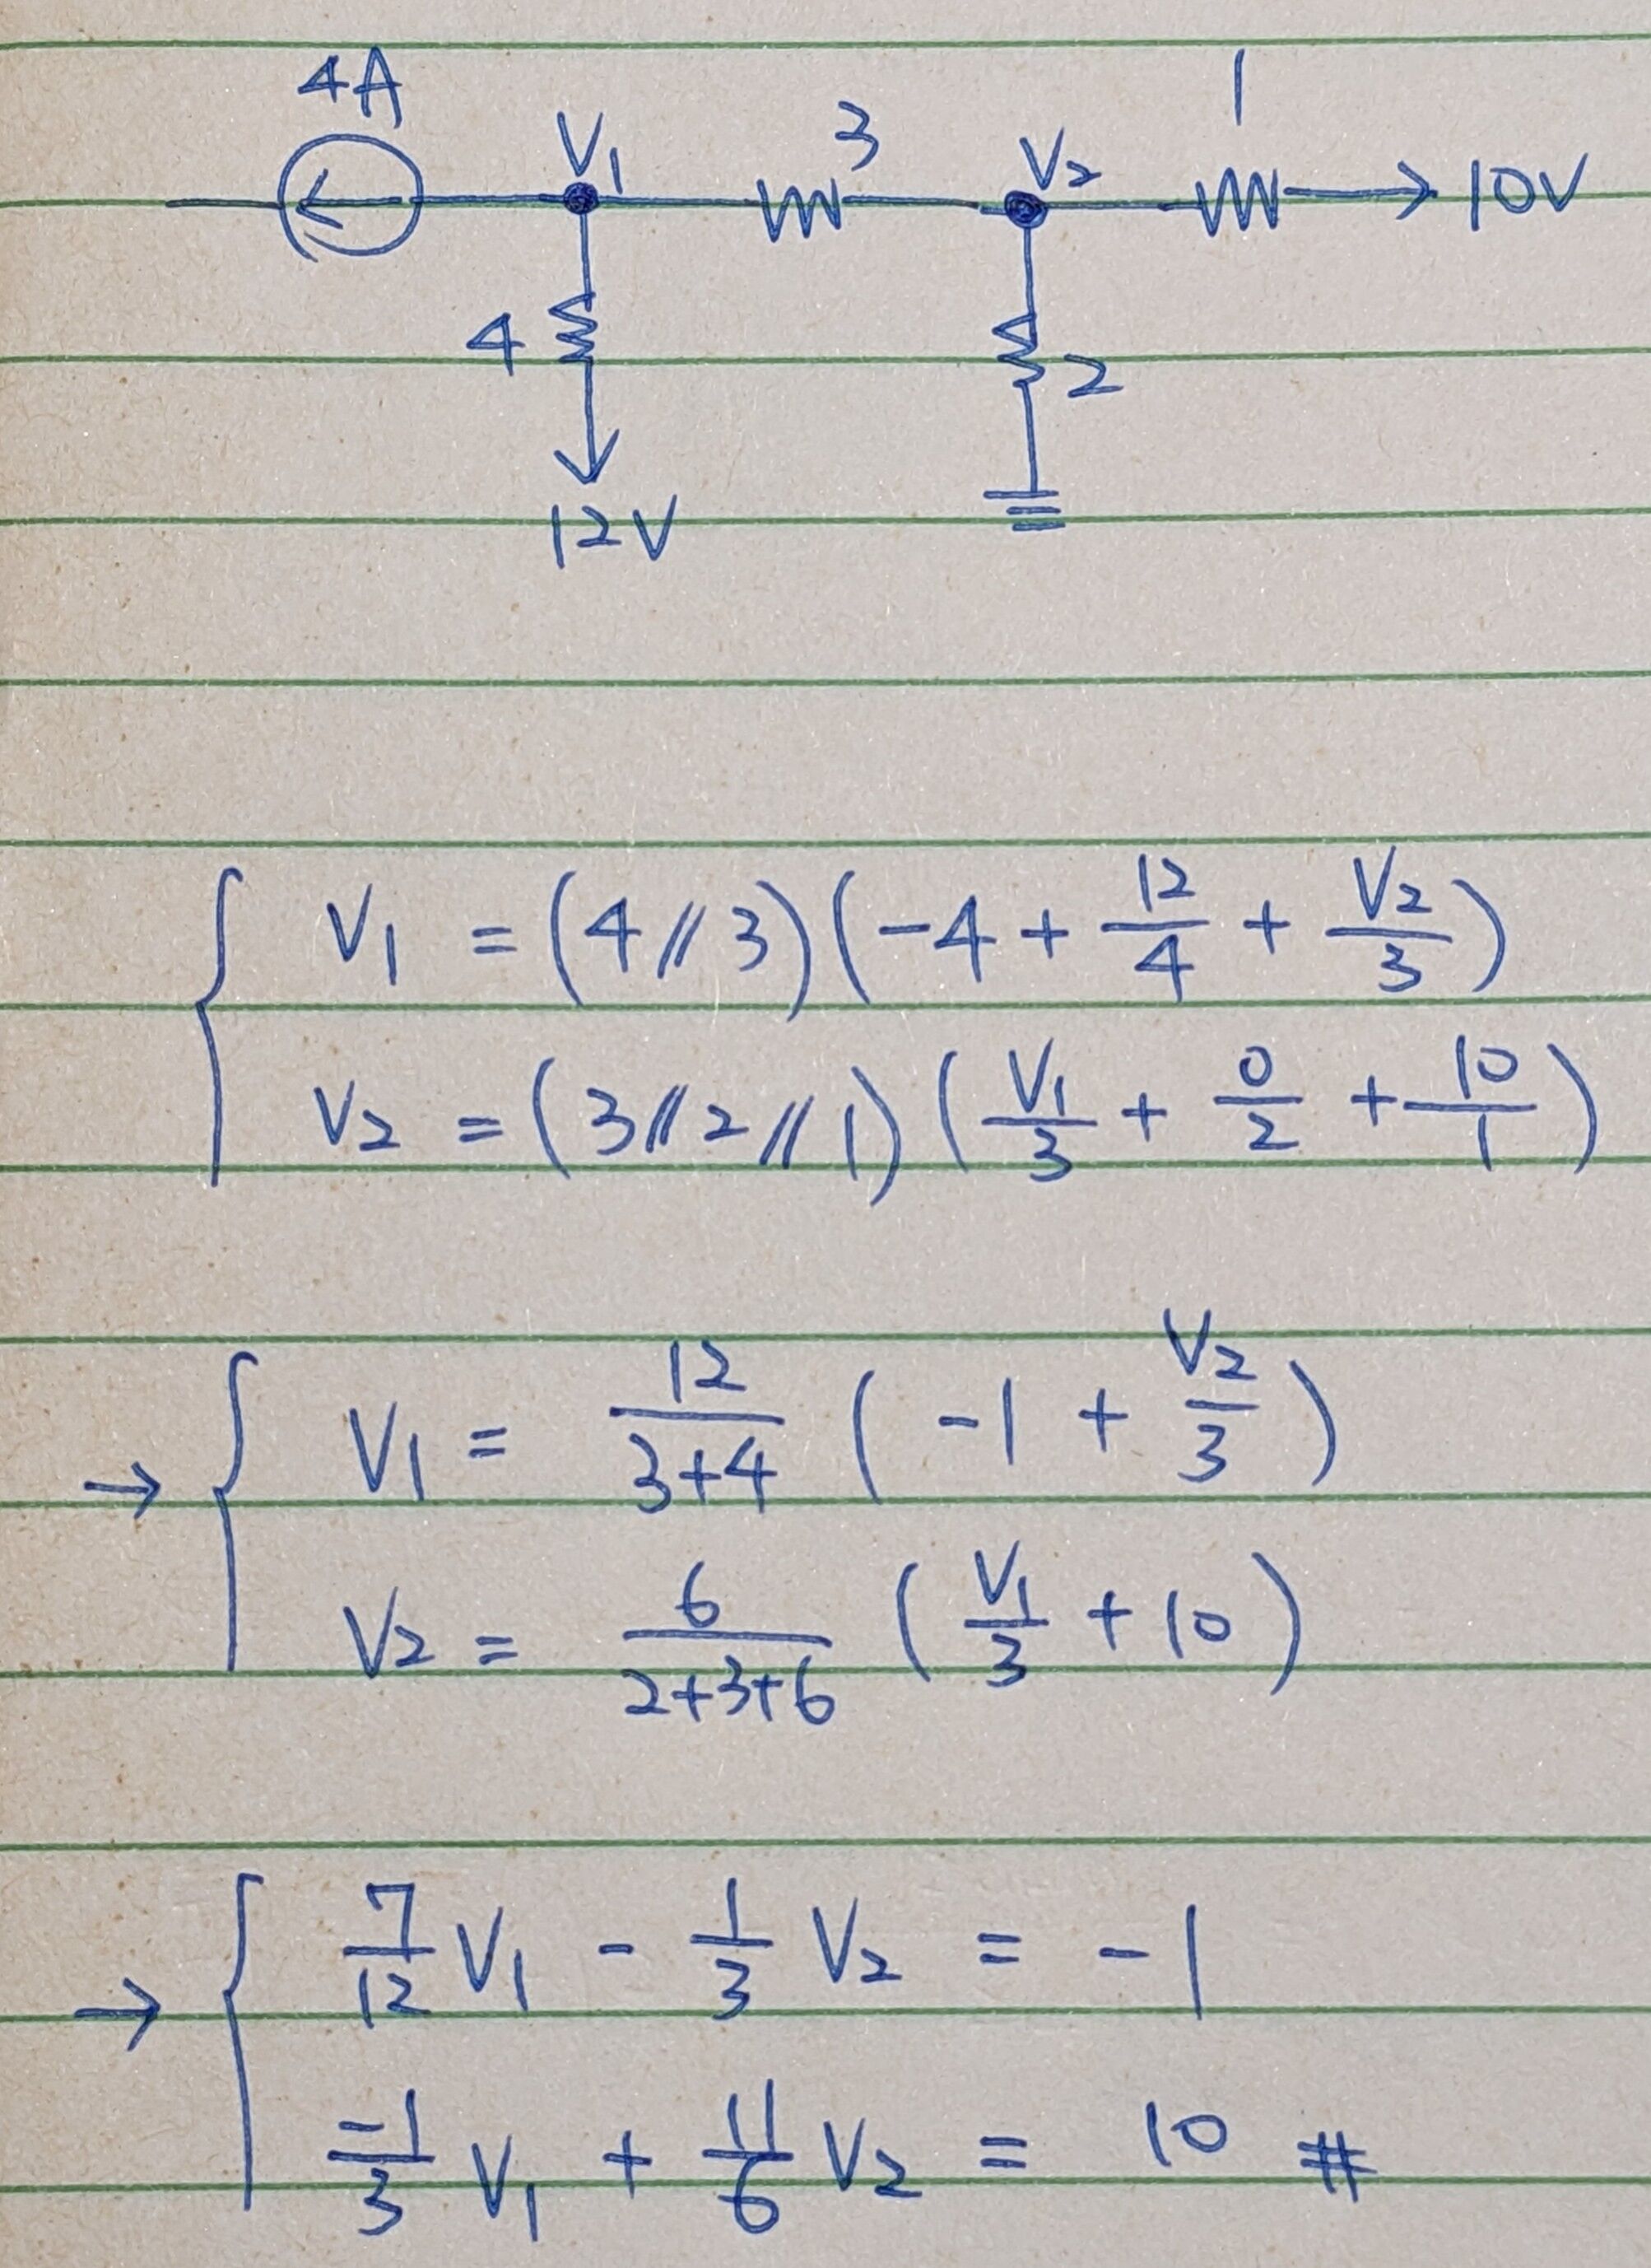 4A V₁ 3 V₂ 1 10V
4 2
12V
V₁ = (4//3)(-4 + 12/4 + V₂/3)
V₂ = (3//2//1)(V₁/3 + 0/2 + 10/1)
→ V₁ = 12/(3+4) (-1 + V₂/3)
V₂ = 6/(2+3+6) (V₁/3 + 10)
→ 7/12 V₁ - 1/3 V₂ = -1
-1/3 V₁ + 11/6 V₂ = 10 #